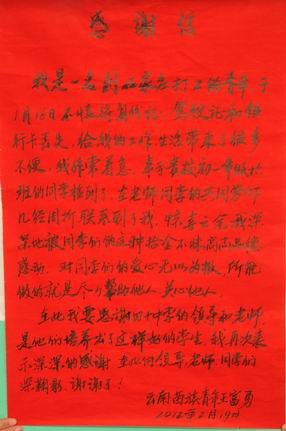 感谢信
我是一名到石家庄打工的青年于
1月15日不慎将身份证、驾驶证和银
行卡丢失，给我的工作生活带来了很多
不便，我非常着急，幸于贵校初一年级
班的同学检到了，在老师同学的共同努力下
几经周折联系到了我，惊喜之余我深
深地被同学们的这种拾金不昧高尚品德
感动。对同学们的爱心无以为报，所能
做的就是尽力帮助他人，关心他人。
在此我要感谢四十中学的领导和老师，
是他们培养出了这样好的学生，我再次表
示深深的感谢，在此向领导、老师、同学们
深鞠躬，谢谢了！
云南青年王富勇
2012年2月19日